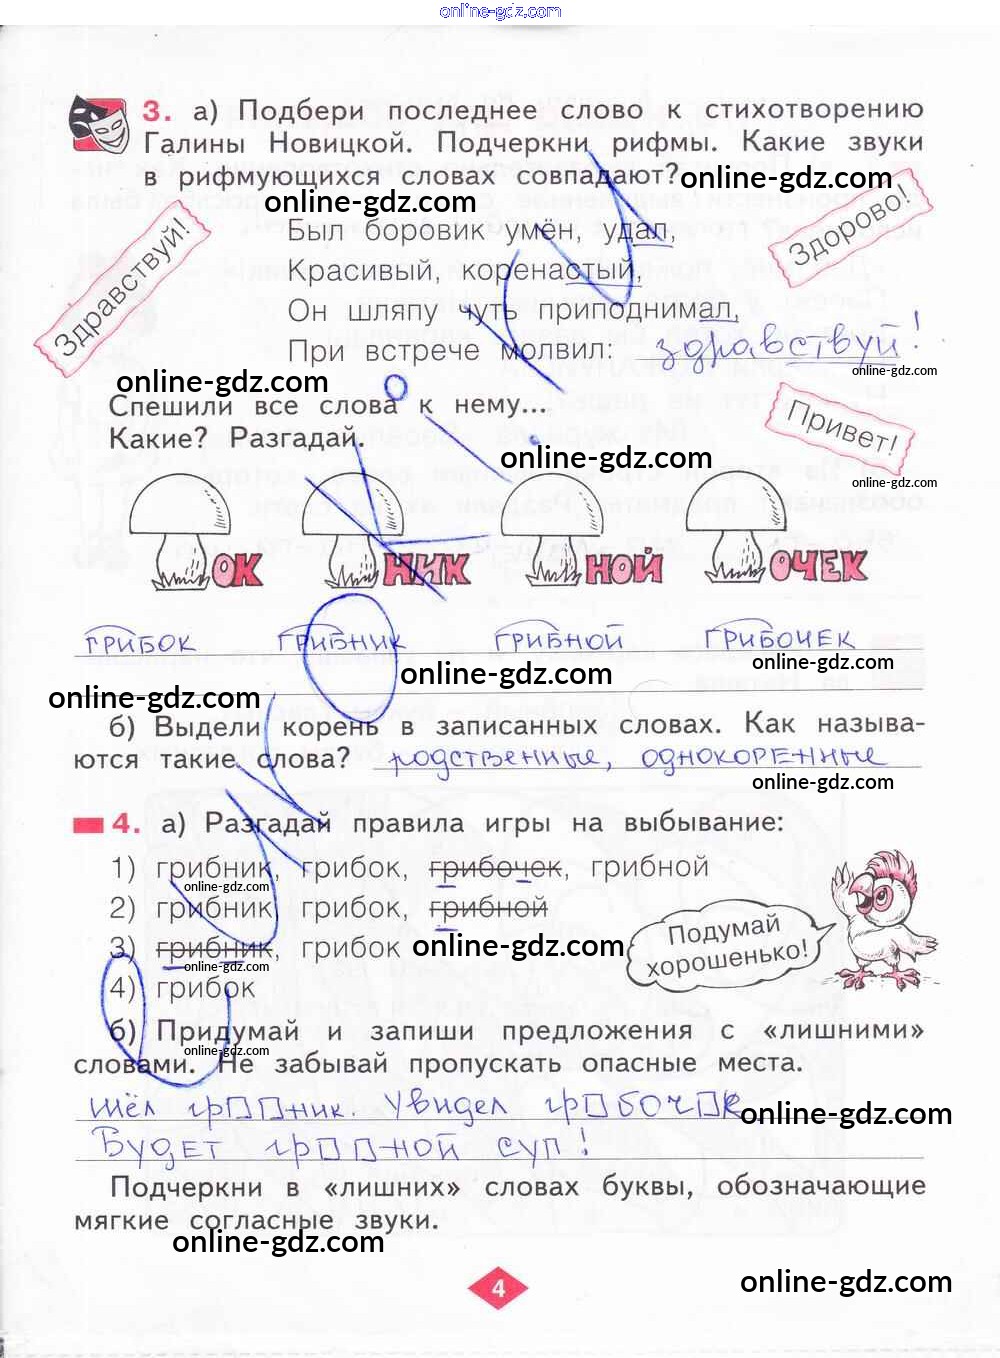 online-gdz.com
3. а) Подбери последнее слово к стихотворению
Галины Новицкой. Подчеркни рифмы. Какие звуки
в рифмующихся словах совпадают?
online-gdz.com
online-gdz.com
Здравствуй!
Здорово!
Был боровик умён, удал,
Красивый, коренастый,
Он шляпу чуть приподнимал,
При встрече молвил: здравствуй!
online-gdz.com
online-gdz.com
Спешили все слова к нему...
Какие? Разгадай.
Привет!
online-gdz.com
online-gdz.com
ОК НИК НОЙ ОЧЕК
ГРИБОК ГРИБНИК ГРИБНОЙ ГРИБОЧЕК
online-gdz.com
online-gdz.com
online-gdz.com
б) Выдели корень в записанных словах. Как называ-
ются такие слова? родственные, однокоренные
online-gdz.com
4. а) Разгадай правила игры на выбывание:
1) грибник, грибок, грибочек, грибной
online-gdz.com
2) грибник, грибок, грибной
3) грибник, грибок
online-gdz.com
online-gdz.com
4) грибок
Подумай
хорошенько!
б) Придумай и запиши предложения с «лишними»
online-gdz.com
словами. Не забывай пропускать опасные места.
Шёл гр□□ник. Увидел гр□боч□к.
online-gdz.com
Будет гр□□ной суп!
Подчеркни в «лишних» словах буквы, обозначающие
мягкие согласные звуки.
online-gdz.com
4
online-gdz.com